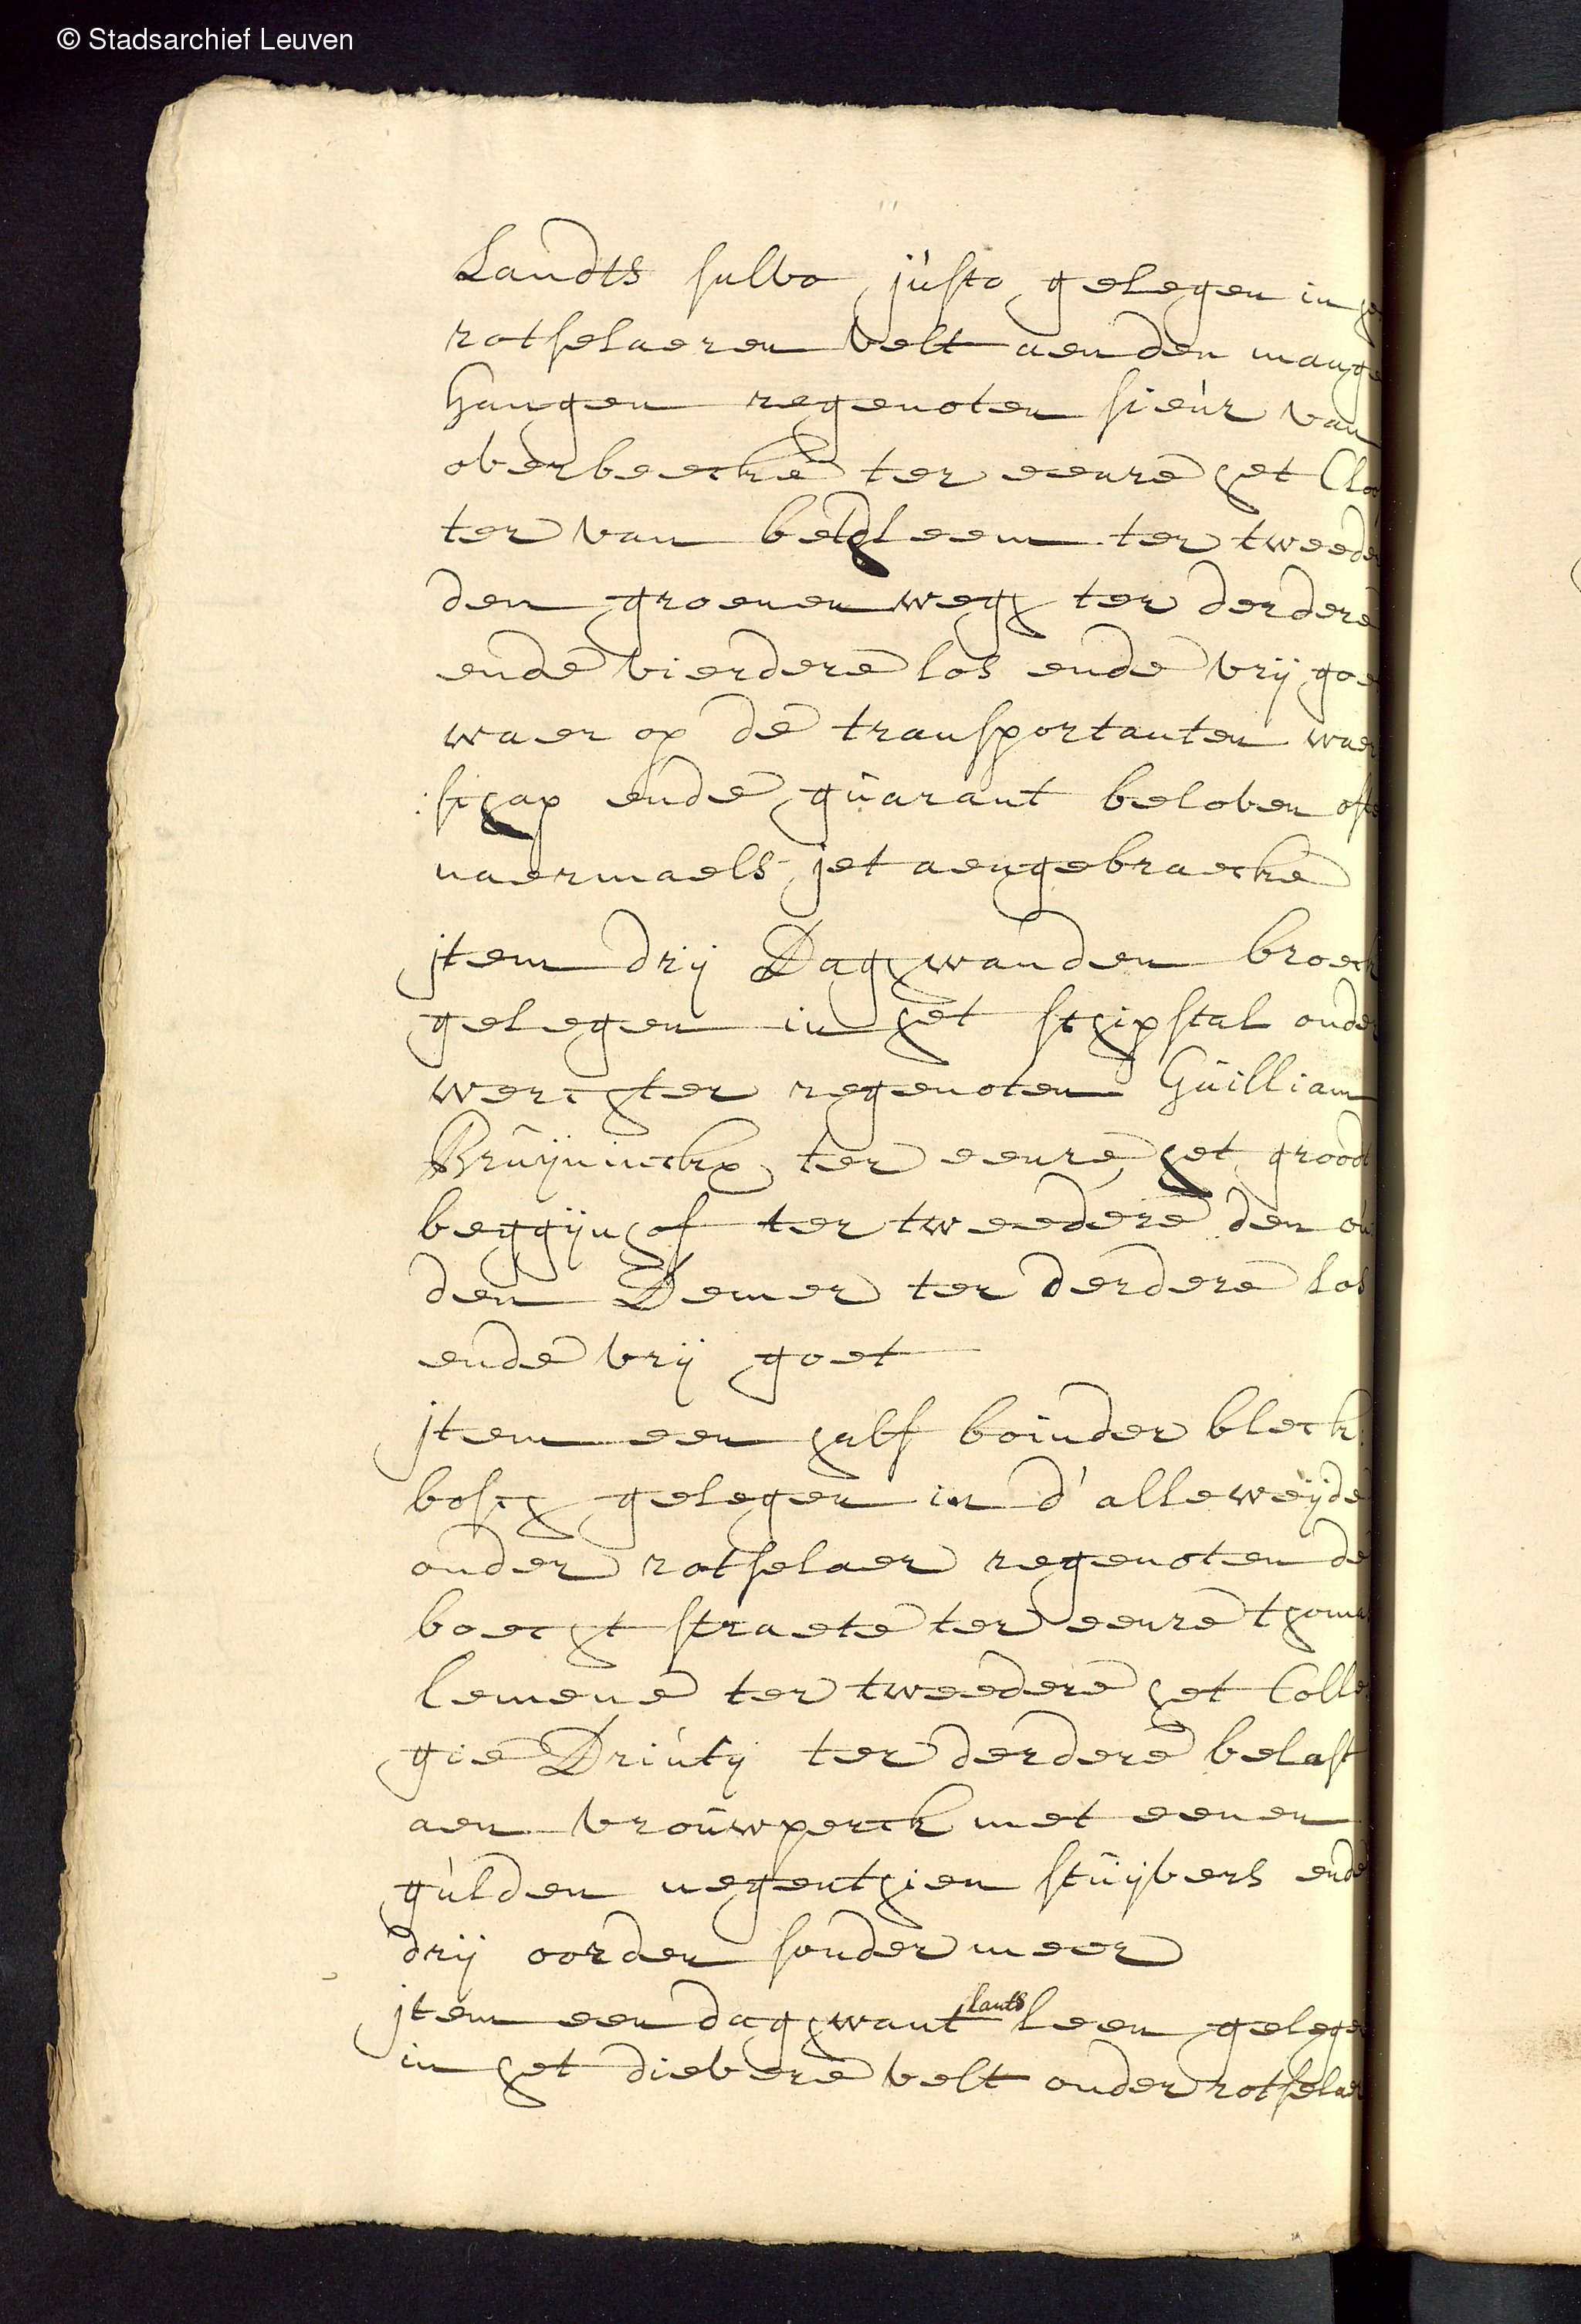 © Stadsarchief Leuven
Landts salvo justo gelegen in he
rotselaeren velt aenden mange
hangen regenoten sieur van
overbeecke ter eenre het Cloo
ter van bethleem ter tweeder
den groenen wegh ter derdere
ende vierdere los ende vrij goe
waer op de transportanten waer
schap ende guarant beloven ofte
naermaels jet aengebraecke
jtem drij Daghwanden broeck
gelegen in het schipstal onder
werchter regenoten Guilliam
Bruyninckx ter eenre het groodt
beggijnhof ter tweedere den ou
den Demer ter derdere los
ende vrij goet
jtem een half boinder bleck
bosch gelegen in d'alleweijde
onder rotselaer regenoten de
boecht straete ter eenre thomas
lemene ter tweedere het Colle
gie Driutij ter derdere belast
aen vrouwperck met eenen
gulden negenthien stuijvers ende
drij oorden sonder meer
jtem een daghwant lants leen gelegen
in het dievere velt onder rotselaer